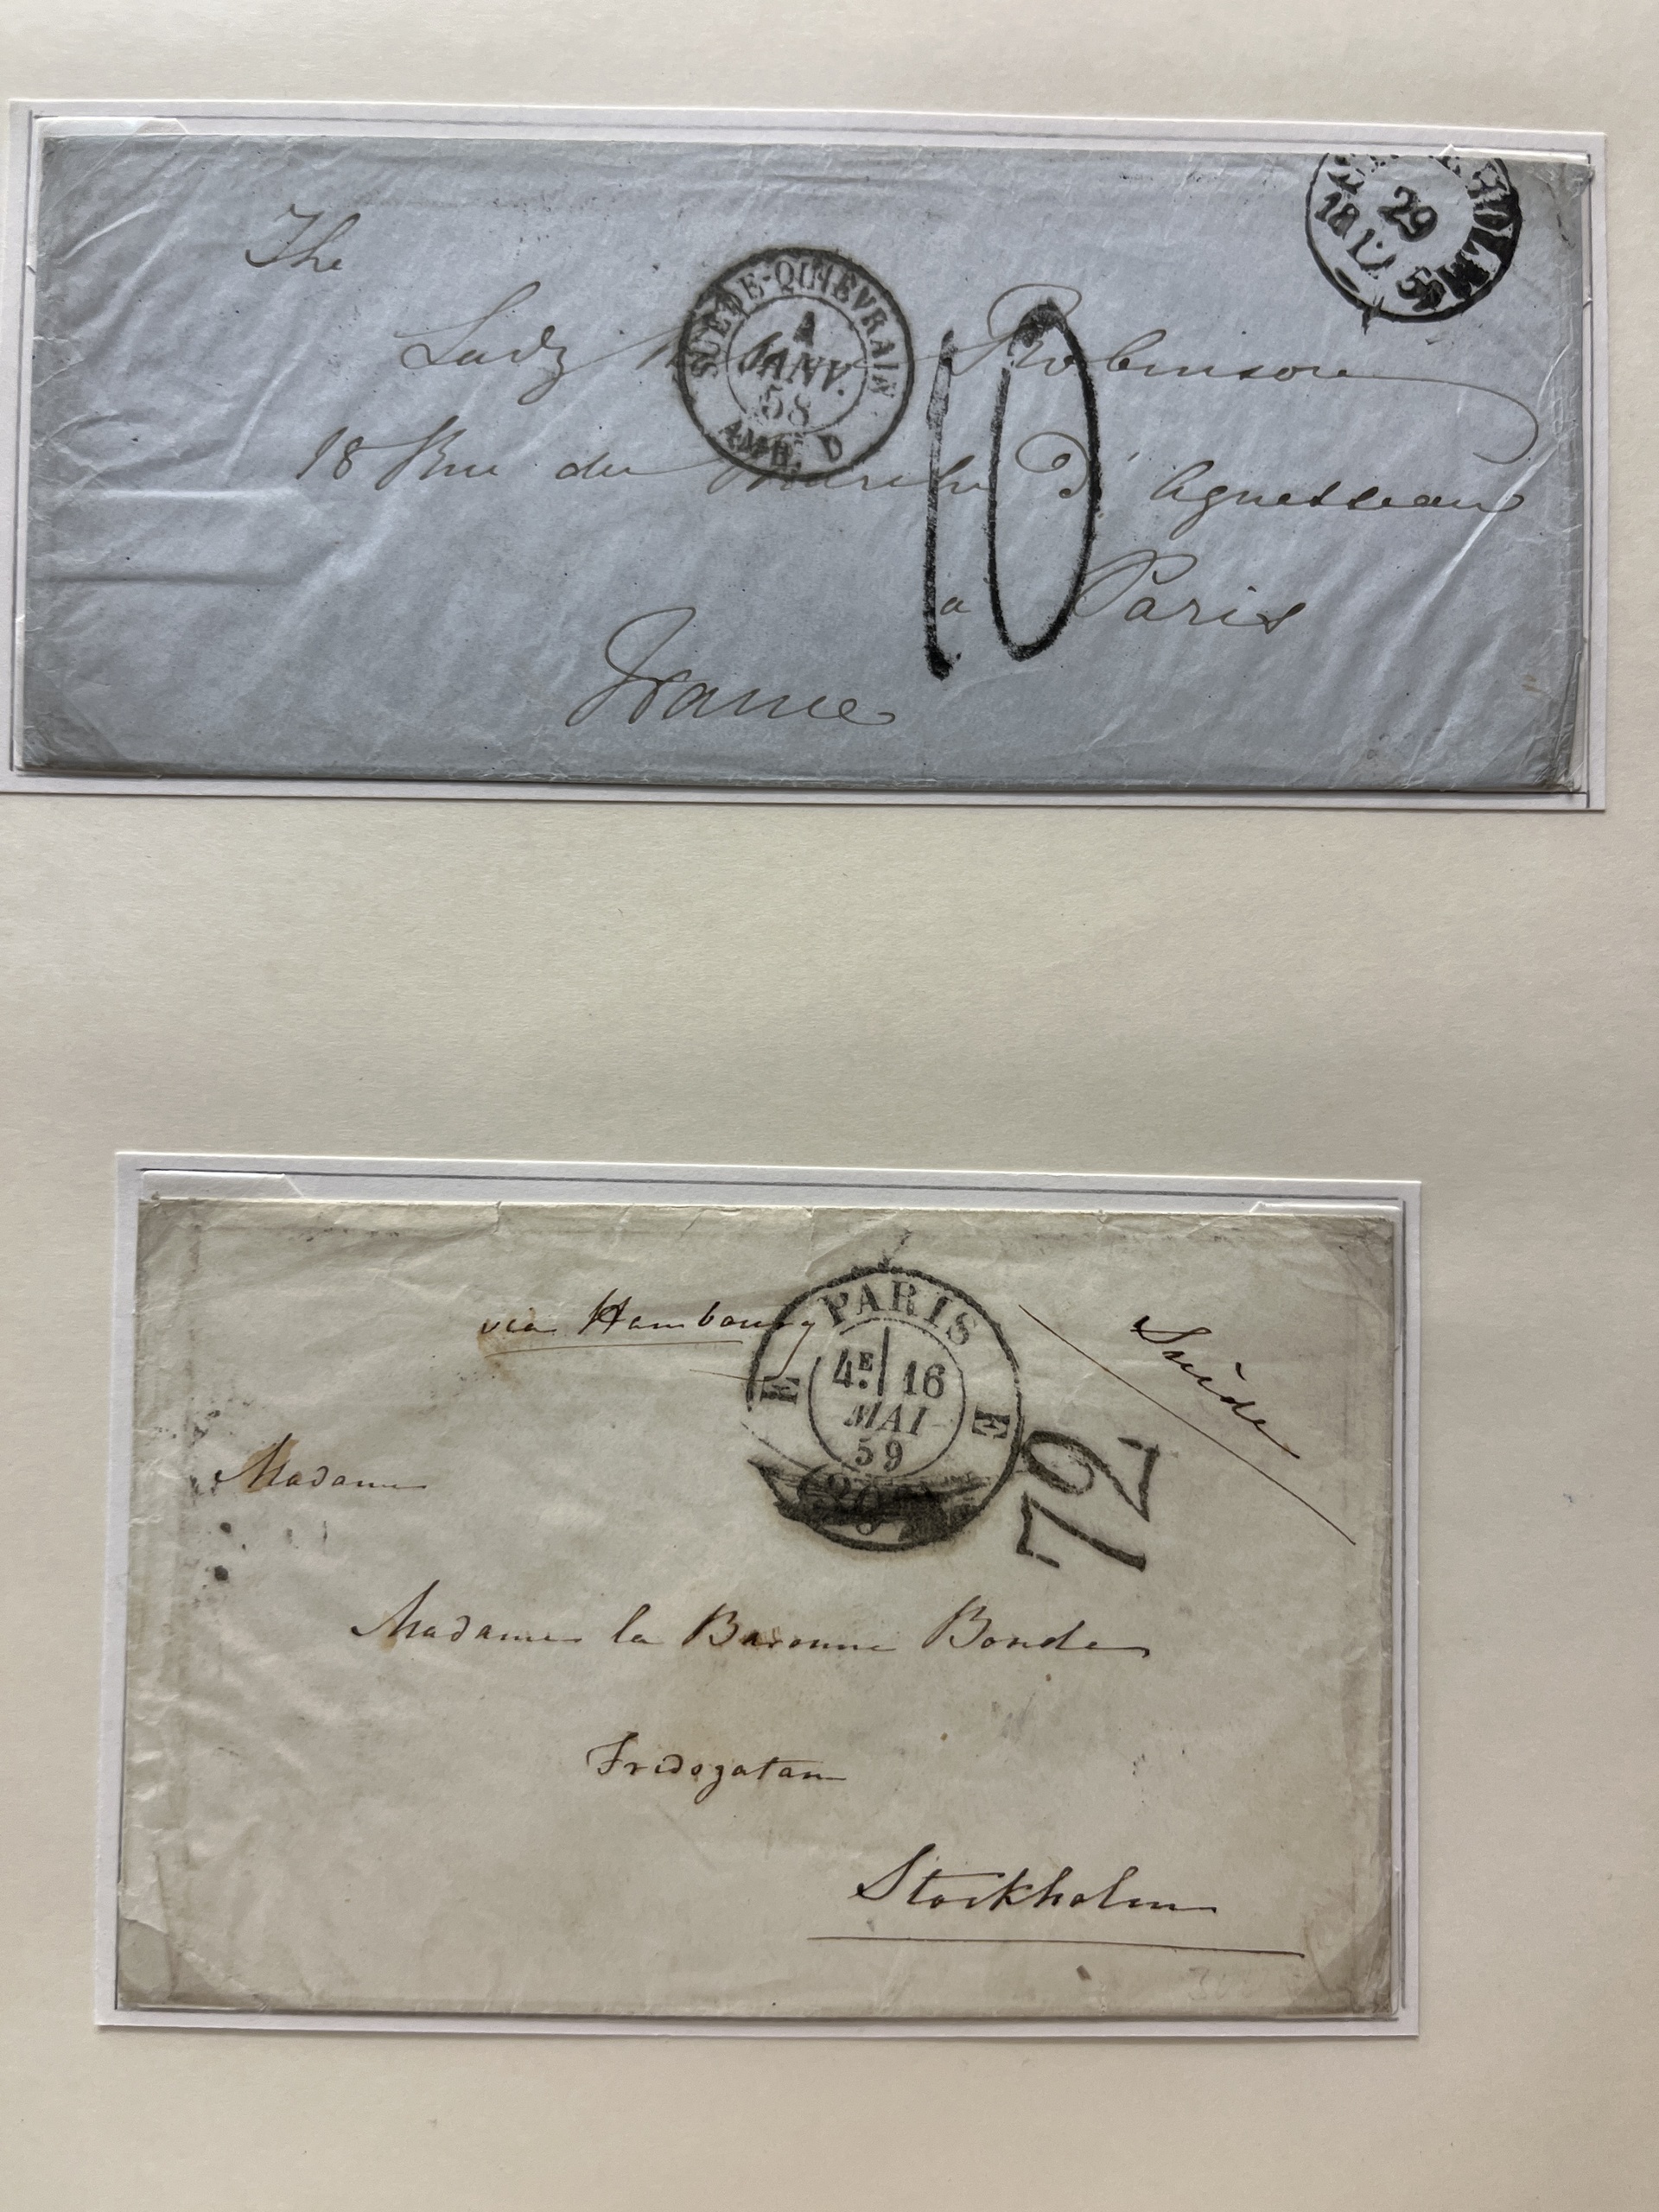 The
Lady Robinson
18 Rue du Marche d'Aguesseau
a Paris
France
SUEDE-QUIEVRAIN
4
JANV.
58
AMB. D
10
29
18
via Hambourg
Suède
PARIS
4E 16
MAI
59
E E
72
Madame
Madame la Baronne Bonde
Fredsgatan
Stockholm